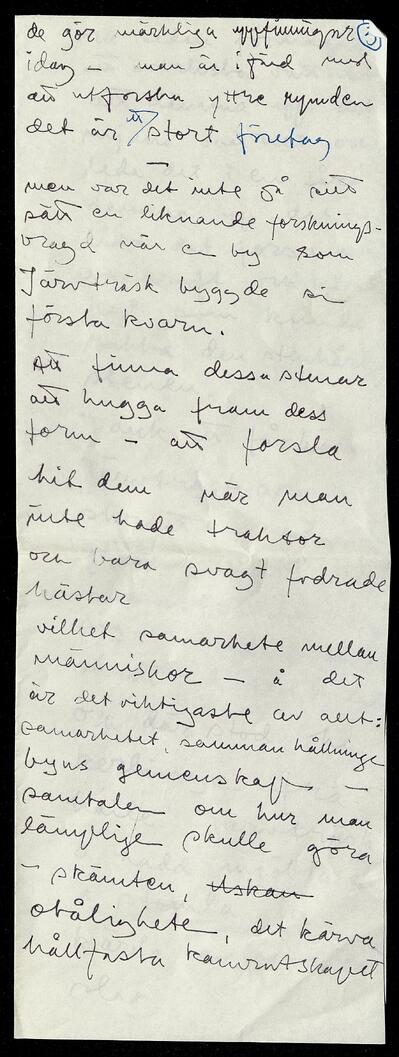 de gör märkliga uppfinningar
idag – man är i färd med
att utforska yttre rymden
det är ett stort företag
men var det inte på sitt
sätt en liknande forsknings-
bragd när en by som
Järvträsk byggde sin
första kvarn.
Att finna dessa stenar
att hugga fram dess
form – att forsla
hit dem när man
inte hade traktor
och bara svagt fodrade
hästar
vilket samarbete mellan
människor – å det
är det viktigaste av allt:
samarbetet, sammanhållningen
byns gemenskap –
samtalen om hur man
lämplige skulle göra
– skämten, 
otåligheten, det kärva
hållfasta kamratskapet